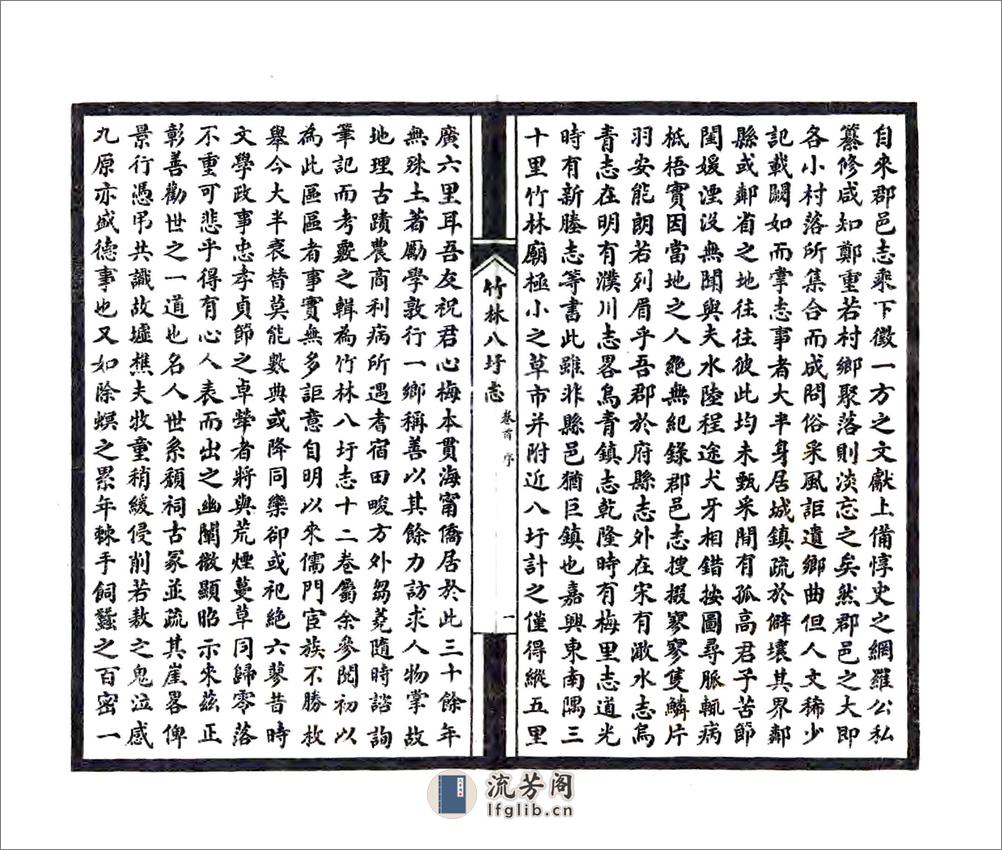 自來郡邑志乘下徵一方之文獻上備惇史之網羅公私
纂修咸知鄭重若村鄉聚落則淡忘之矣然郡邑之大即
各小村落所集合而成問俗采風詎遺鄉曲但人文稀少
記載闕如而掌志事者大半身居城鎮疏於僻壤其界鄰
縣或鄰省之地往往彼此均未甄采間有孤高君子苦節
閨媛湮沒無聞與夫水陸程途犬牙相錯按圖尋脈輒病
柢梧實因當地之人絕無紀錄郡邑志搜掇寥寥隻鱗片
羽安能朗若列眉乎吾郡於府縣志外在宋有澉水志烏
青志在明有濮川志畧烏青鎮志乾隆時有梅里志道光
時有新塍志等書此雖非縣邑猶巨鎮也嘉興東南隅三
十里竹林廟極小之草市并附近八圩計之僅得縱五里
竹林八圩志
卷首 序
一
廣六里耳吾友祝君心梅本貫海甯僑居於此三十餘年
無殊土著勵學敦行一鄉稱善以其餘力訪求人物掌故
地理古蹟農商利病所遇耆宿田畯方外芻蕘隨時諮詢
筆記而考覈之輯為竹林八圩志十二卷屬余參閱初以
為此區區者事實無多詎意自明以來儒門宦族不勝枚
舉今大半衰替莫能數典或降同欒卻或祀絕六蓼昔時
文學政事忠孝貞節之卓犖者將與荒煙蔓草同歸零落
不重可悲乎得有心人表而出之幽闡微顯昭示來茲正
彰善勸世之一道也名人世系顧祠古冢並疏其崖畧俾
景行憑弔共識故墟樵夫牧童稍緩侵削若敖之鬼泣感
九原亦盛德事也又如除螟之累年棘手飼蠶之百密一
流芳阁
lfglib.cn